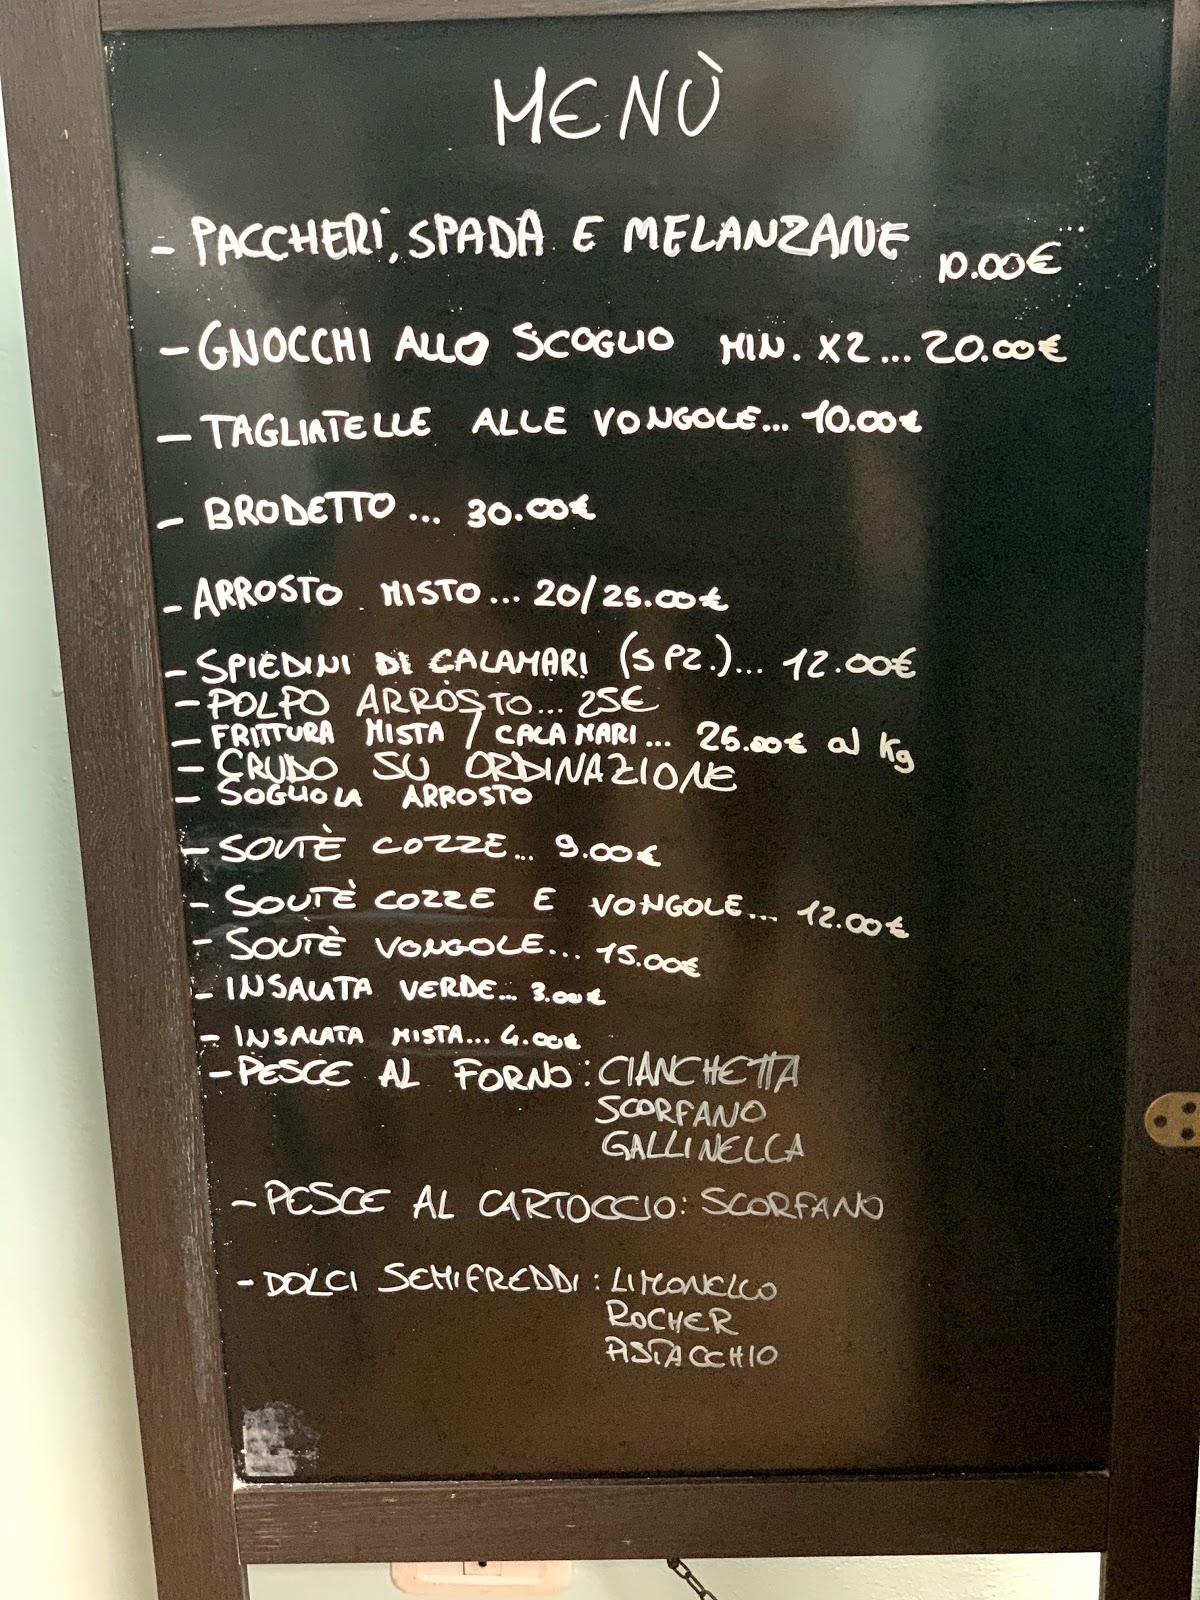 MENÙ
- PACCHERI, SPADA E MELANZANE ... 10.00€
- GNOCCHI ALLO SCOGLIO MIN. X2 ... 20.00€
- TAGLIATELLE ALLE VONGOLE... 10.00€
- BRODETTO ... 30.00€
- ARROSTO MISTO... 20/25.00€
- SPIEDINI DI CALAMARI (5 PZ.)... 12.00€
- POLPO ARROSTO... 25€
- FRITTURA MISTA / CALAMARI... 25.00€ al Kg
- CRUDO SU ORDINAZIONE
- SOGLIOLA ARROSTO
- SOUTÈ COZZE... 9.00€
- SOUTÈ COZZE E VONGOLE... 12.00€
- SOUTÈ VONGOLE... 15.00€
- INSALATA VERDE... 3.00€
- INSALATA MISTA... 4.00€
- PESCE AL FORNO: CIANCHETTA
SCORFANO
GALLINELLA
- PESCE AL CARTOCCIO: SCORFANO
- DOLCI SEMIFREDDI: LIMONELLO
ROCHER
PISTACCHIO